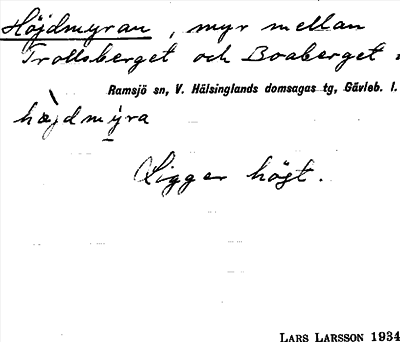 Höjdmyran, myr mellan
Trollsberget och Boaberget.
Ramsjö sn, V. Hälsinglands domsagas tg, Gävleb. l.
hæ̀jdmy̱ra
Ligger högt.
LARS LARSSON 1934